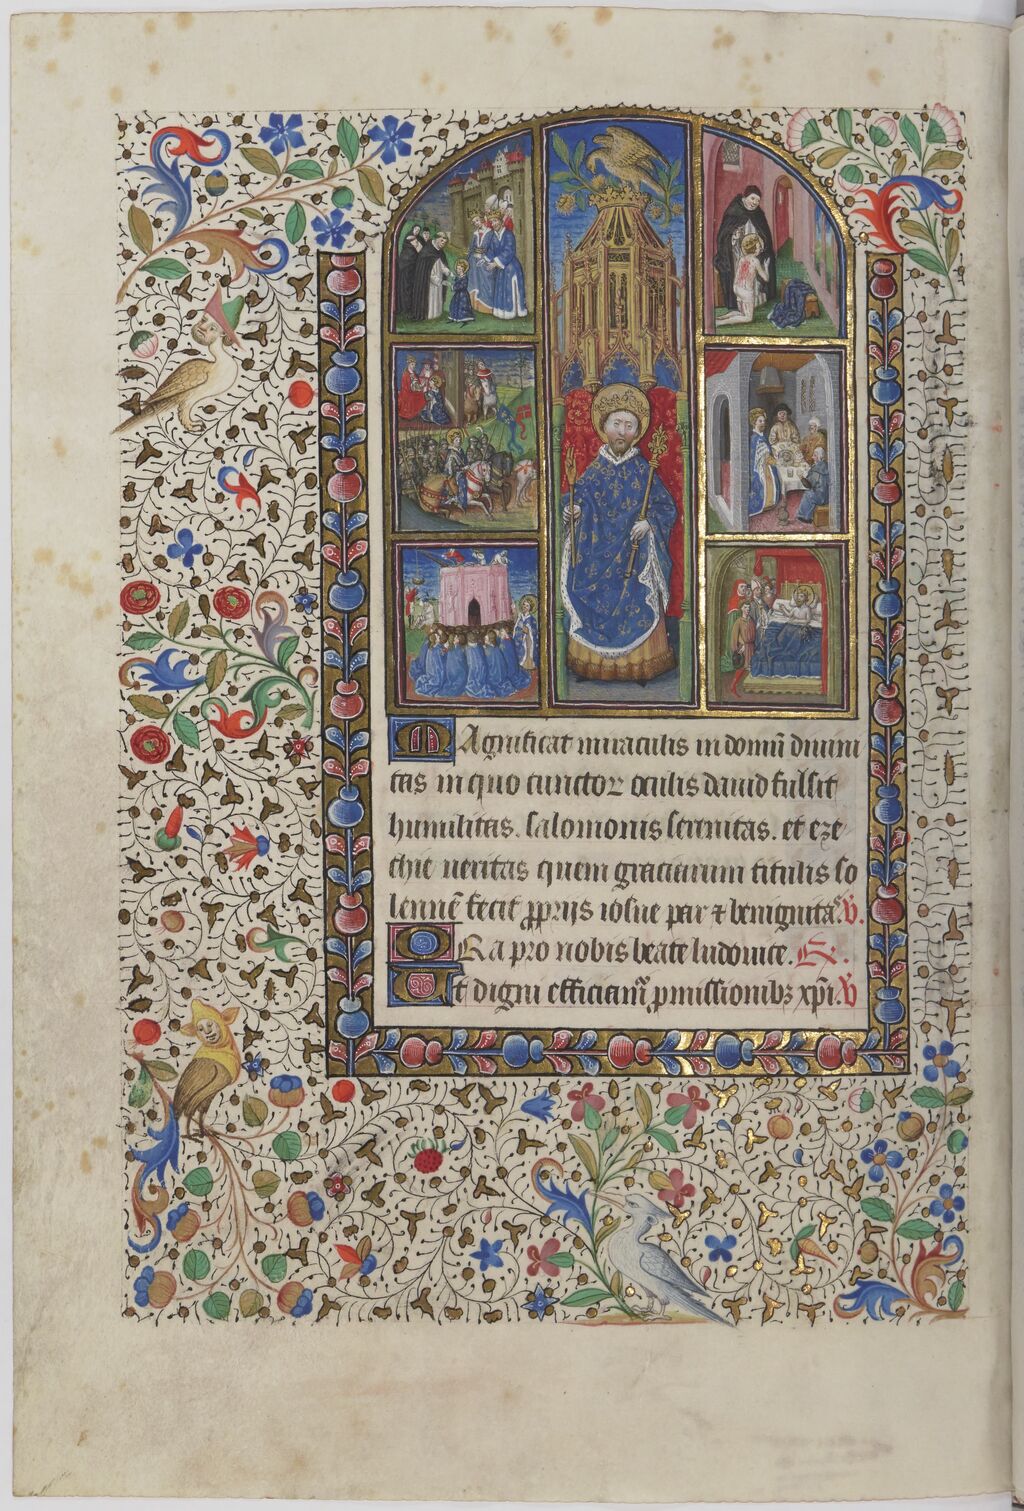 Magnificat miraculis in domũ diuini
tas in quo cunctoꝝ oculis dauid fulsit
humilitas. salomonis serenitas. et eze
chie ueritas quem graciarum titulis so
lennẽ fecit ꝓprijs iosue par ⁊ benignitas. V̕.
ORa pro nobis beate ludouice. R̕.
Ut digni efficiamꝰ ꝓmissionibꝫ xp̃i. V̕